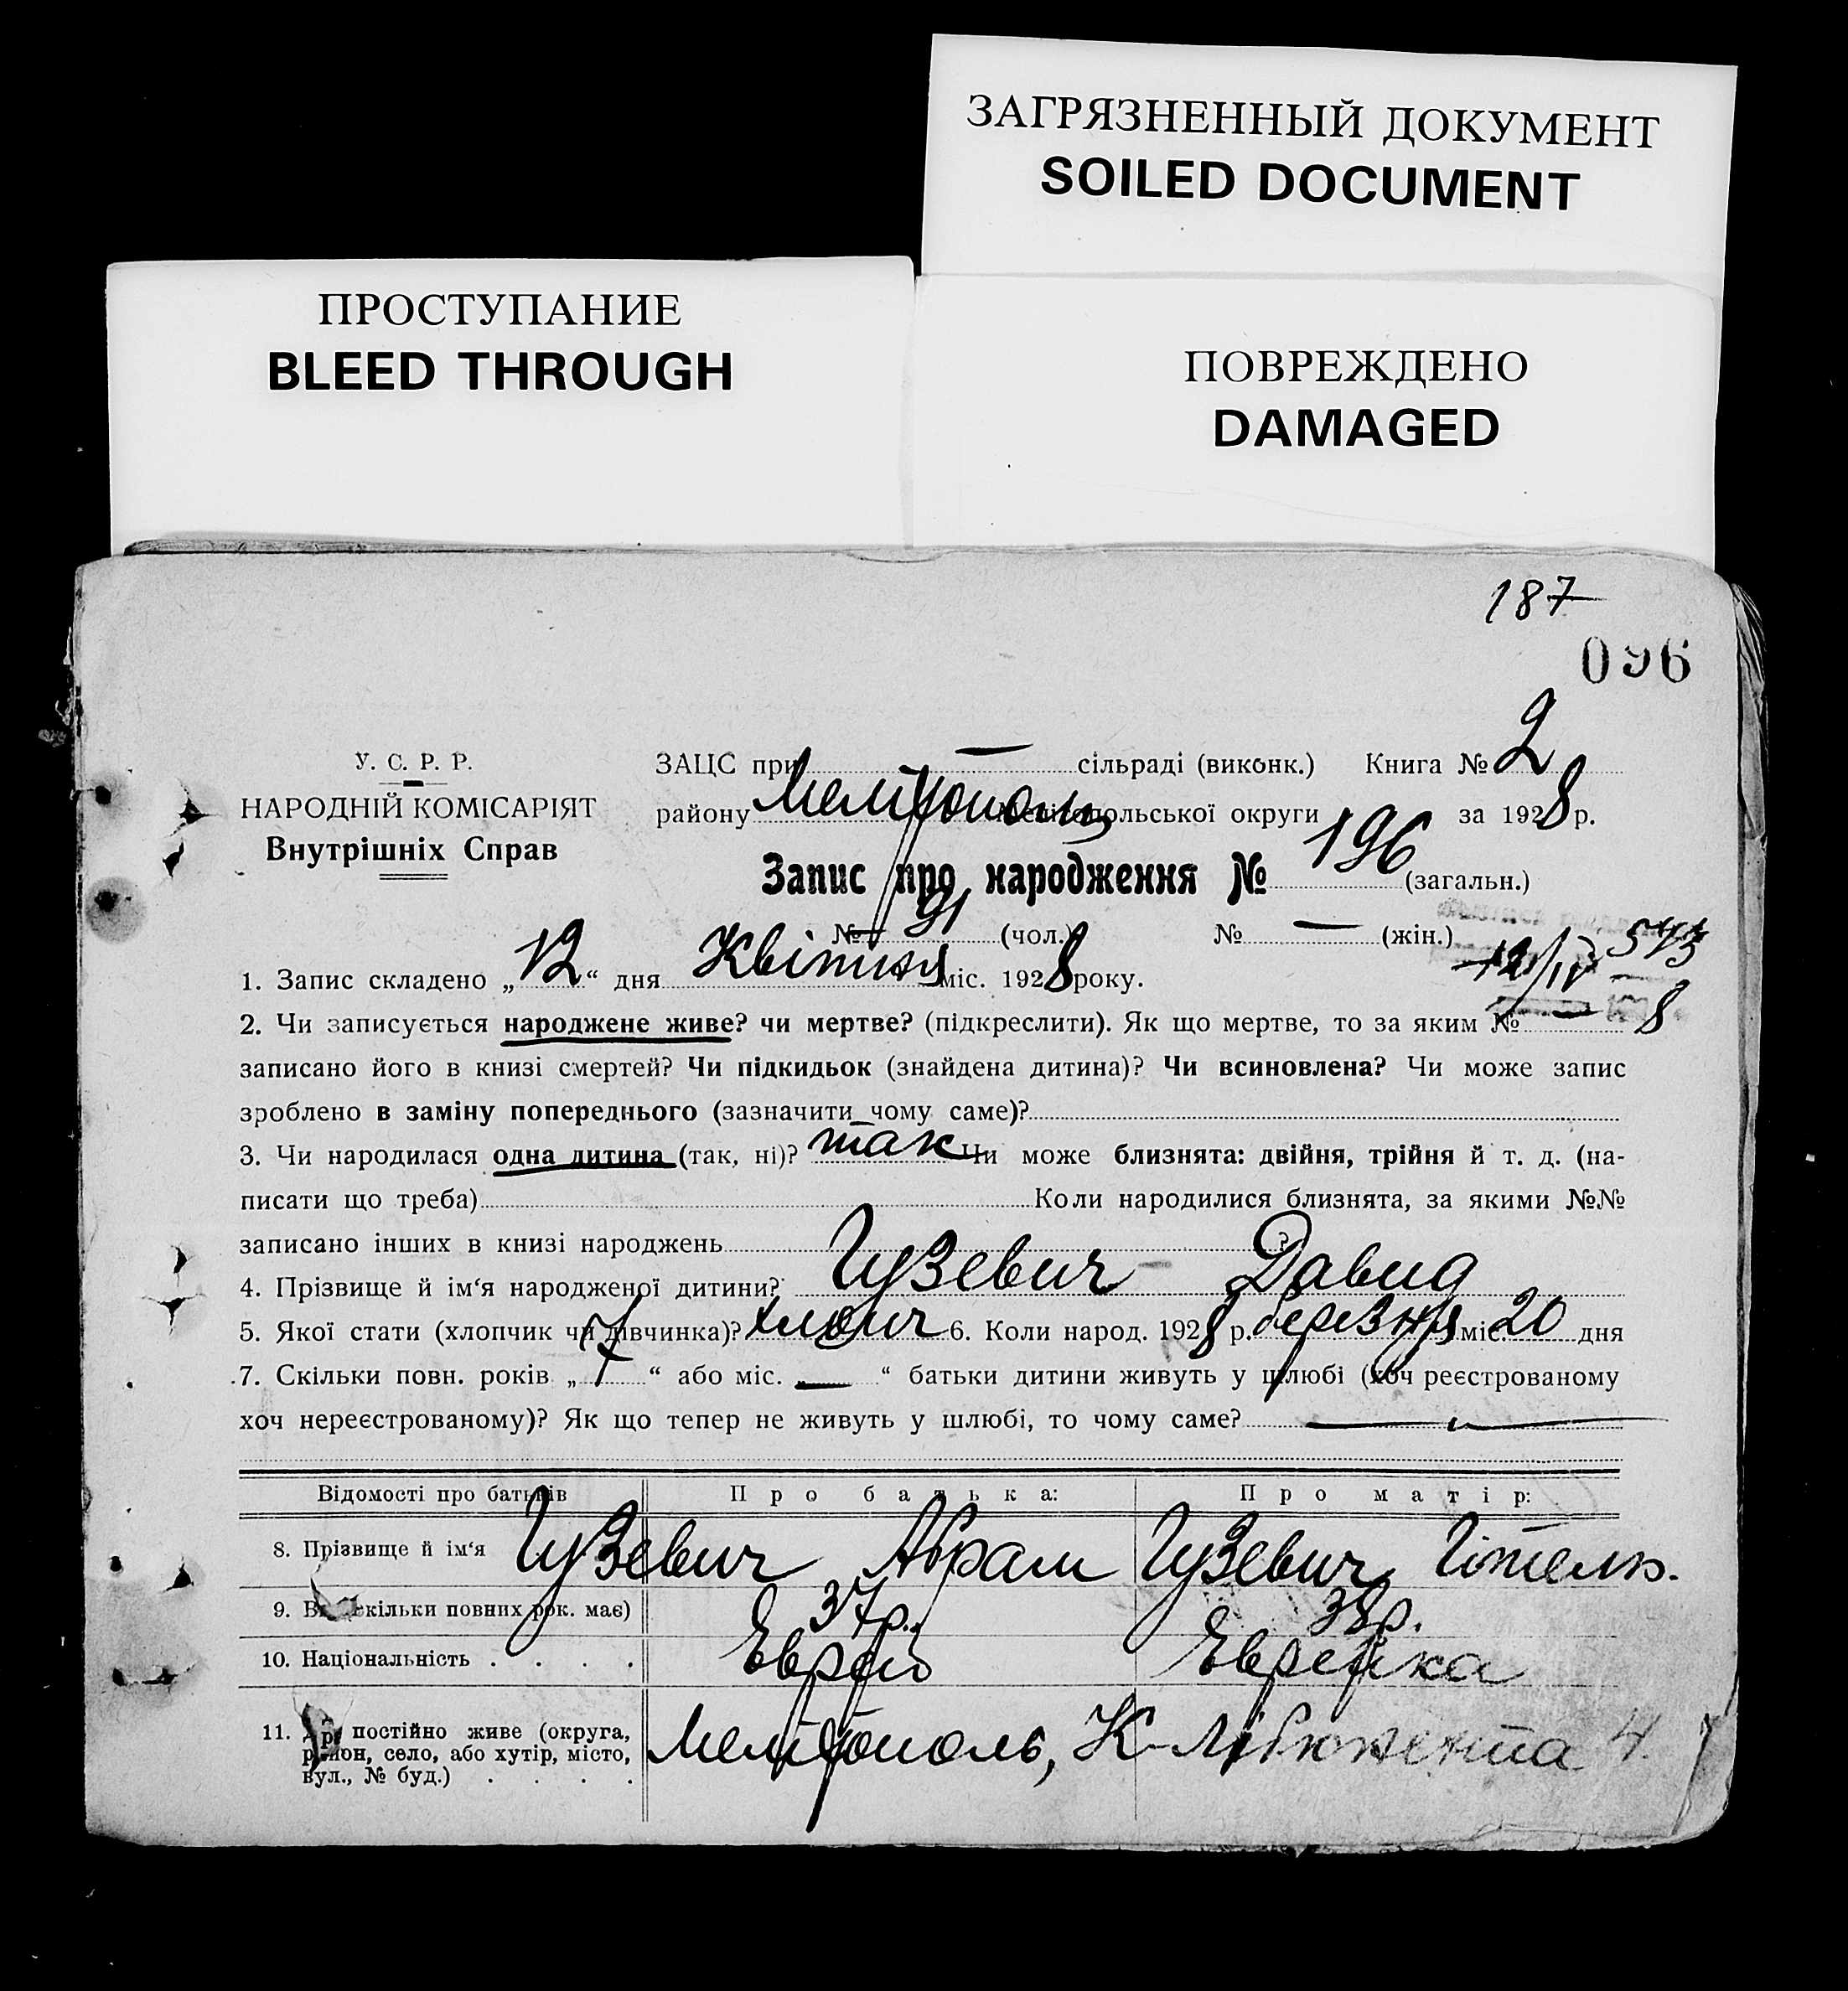 ЗАГРЯЗНЕННЫЙ ДОКУМЕНТ
SOILED DOCUMENT
ПРОСТУПАНИЕ
BLEED THROUGH
ПОВРЕЖДЕНО
DAMAGED
187
096
У. С. Р. Р.
НАРОДНІЙ КОМІСАРІЯТ
Внутрішніх Справ
ЗАЦС при — сільраді (виконк.) Книга № 2
району Мелітополь Мелітопольської округи за 1928 р.
Запис про народження № 196 (загальн.)
№ 91 (чол.) № — (жін.)
12/IV 573
8
1. Запис складено „12“ дня Квітня міс. 1928 року.
2. Чи записується народжене живе? чи мертве? (підкреслити). Як що мертве, то за яким № —
записано його в книзі смертей? Чи підкидьок (знайдена дитина)? Чи всиновлена? Чи може запис
зроблено в заміну попереднього (зазначити чому саме)?
3. Чи народилася одна дитина (так, ні)? так Чи може близнята: двійня, трійня й т. д. (на-
писати що треба) Коли народилися близнята, за якими №№
записано інших в книзі народжень ?
4. Прізвище й ім'я народженої дитини? Гузевич Давид
5. Якої стати (хлопчик чи дівчинка)? хлопч 6. Коли народ. 1928 р. березня міс. 20 дня
7. Скільки повн. років „7“ або міс. „—“ батьки дитини живуть у шлюбі (хоч реєстрованому
хоч нереєстрованому)? Як що тепер не живуть у шлюбі, то чому саме? —
Відомості про батьків Про батька: Про матір:
8. Прізвище й ім'я Гузевич Абрам Гузевич Гітель.
9. скільки повних рок. має) 37р. 38р.
10. Національність . . . . Еврей Еврейка
11. постійно живе (округа,
район, село, або хутір, місто,
вул., № буд.) . . . .
Мелітополь, К-Лібкнехта 4.